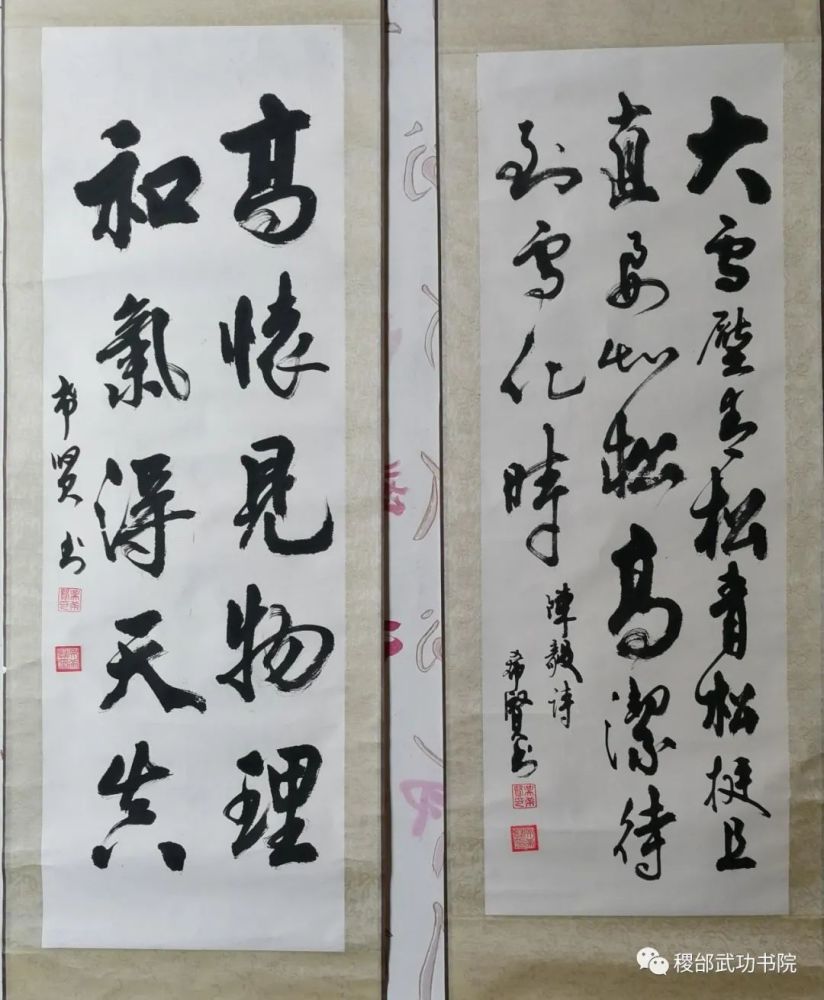 大雪壓青松青松挺且
直要知松高潔待
到雪化時
陳毅詩
希賢书
高懷見物理
和氣得天真
希贤书
稷邰武功书院